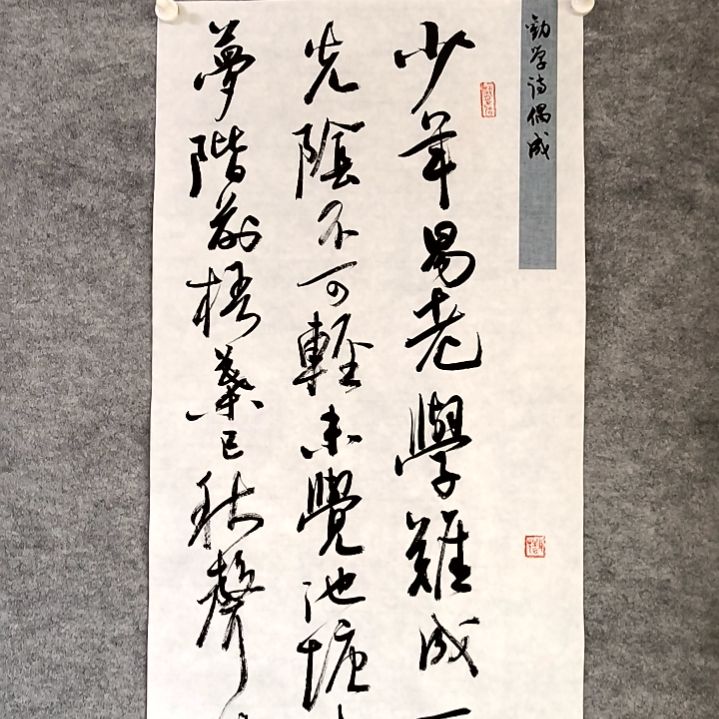 勸學诗偶成
少年易老學難成一
光陰不可輕未覺池塘
夢階前梧葉已秋聲